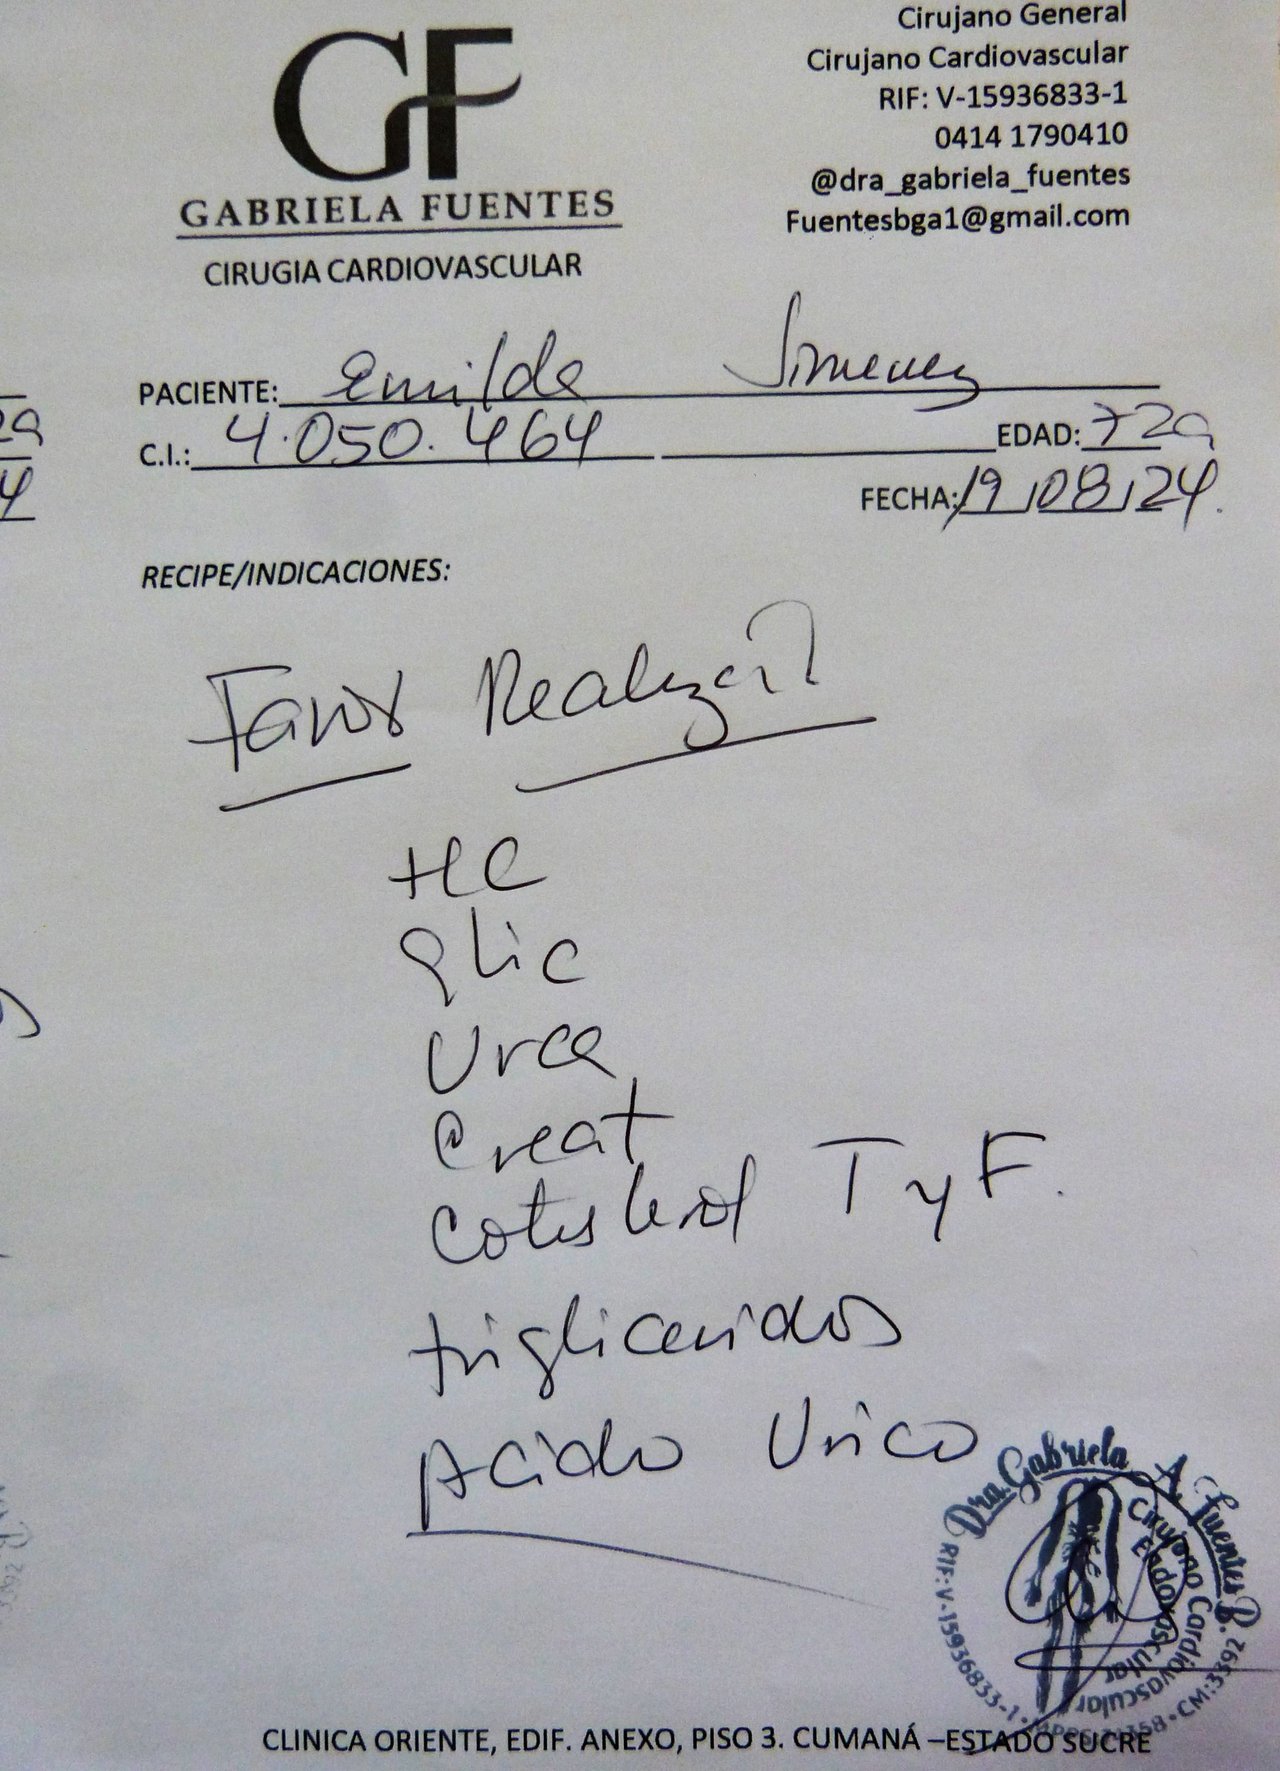 GF
GABRIELA FUENTES
CIRUGIA CARDIOVASCULAR
Cirujano General
Cirujano Cardiovascular
RIF: V-15936833-1
0414 1790410
@dra_gabriela_fuentes
Fuentesbga1@gmail.com
PACIENTE: Emilde Jimenez
C.I.: 4.050.464 EDAD: 72a
FECHA: 19/08/24.
RECIPE/INDICACIONES:
Favor Realizar
HC
Glic
Urea
Creat
Colesterol T y F.
trigliceridos
Acido Urico
Dra. Gabriela A. Fuentes B.
Cirujano Cardiovascular
Endovascular
RIF: V-15936833-1 • CM: 3392
CLINICA ORIENTE, EDIF. ANEXO, PISO 3. CUMANÁ –ESTADO SUCRE